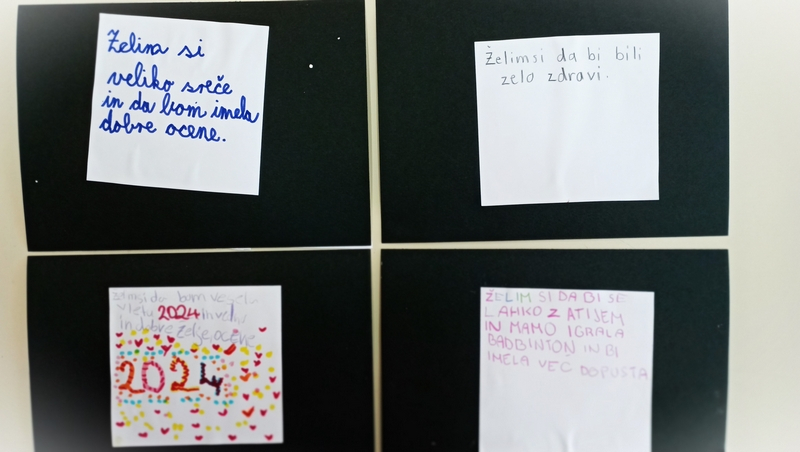 Želim si
veliko sreče
in da bom imela
dobre ocene.
Želimsi da bi bili
zelo zdravi.
želimsi da bom vesela
v letu 2024 in
in dobre želje, ocene
2024
ŽELIM SI DA BI SE
LAHKO Z ATIJEM
IN MAMO IGRALA
BADBINTON IN BI
IMELA VEČ DOPUSTA